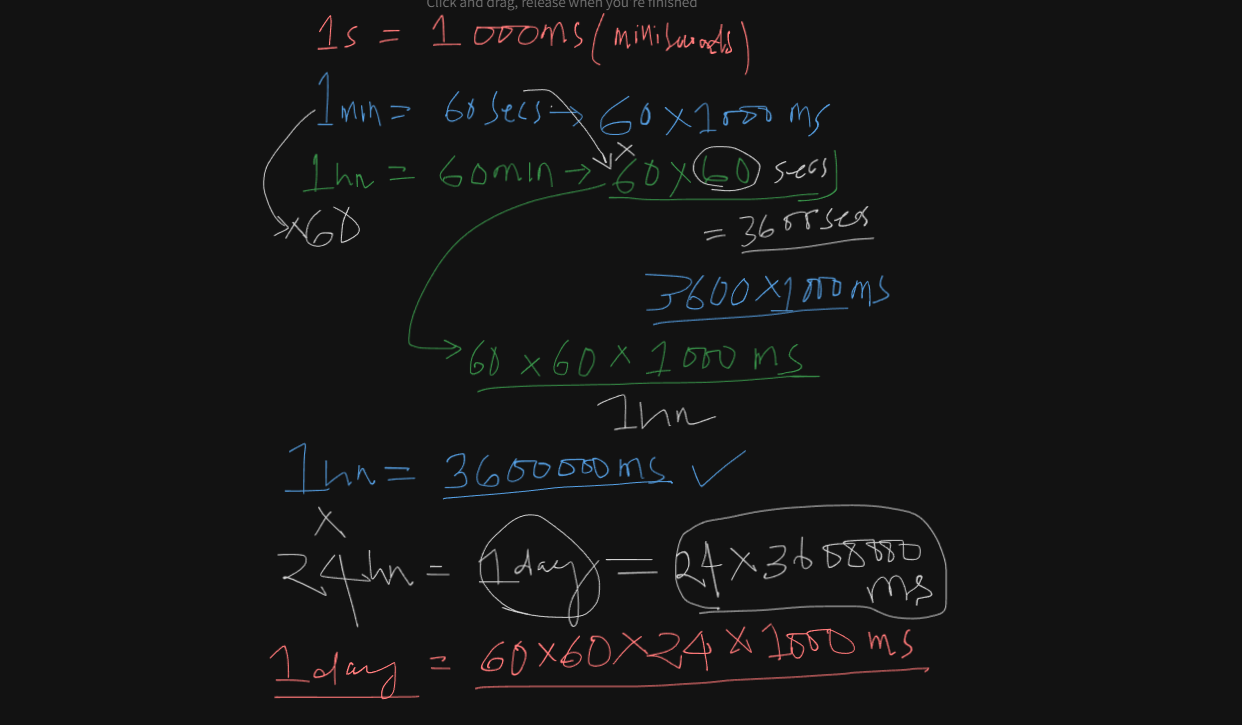 Click and drag, release when you're finished
1s = 1000ms (miniseconds)
1min = 60 secs → 60 x 1000 ms
1hr = 60min → 60 x 60 secs
x60
= 3600 secs
3600 x 1000 ms
60 x 60 x 1000 ms
1hr
1hr = 3600000 ms ✓
x
24hr = 1 day = 24 x 3600000
ms
1 day = 60 x 60 x 24 x 1000 ms